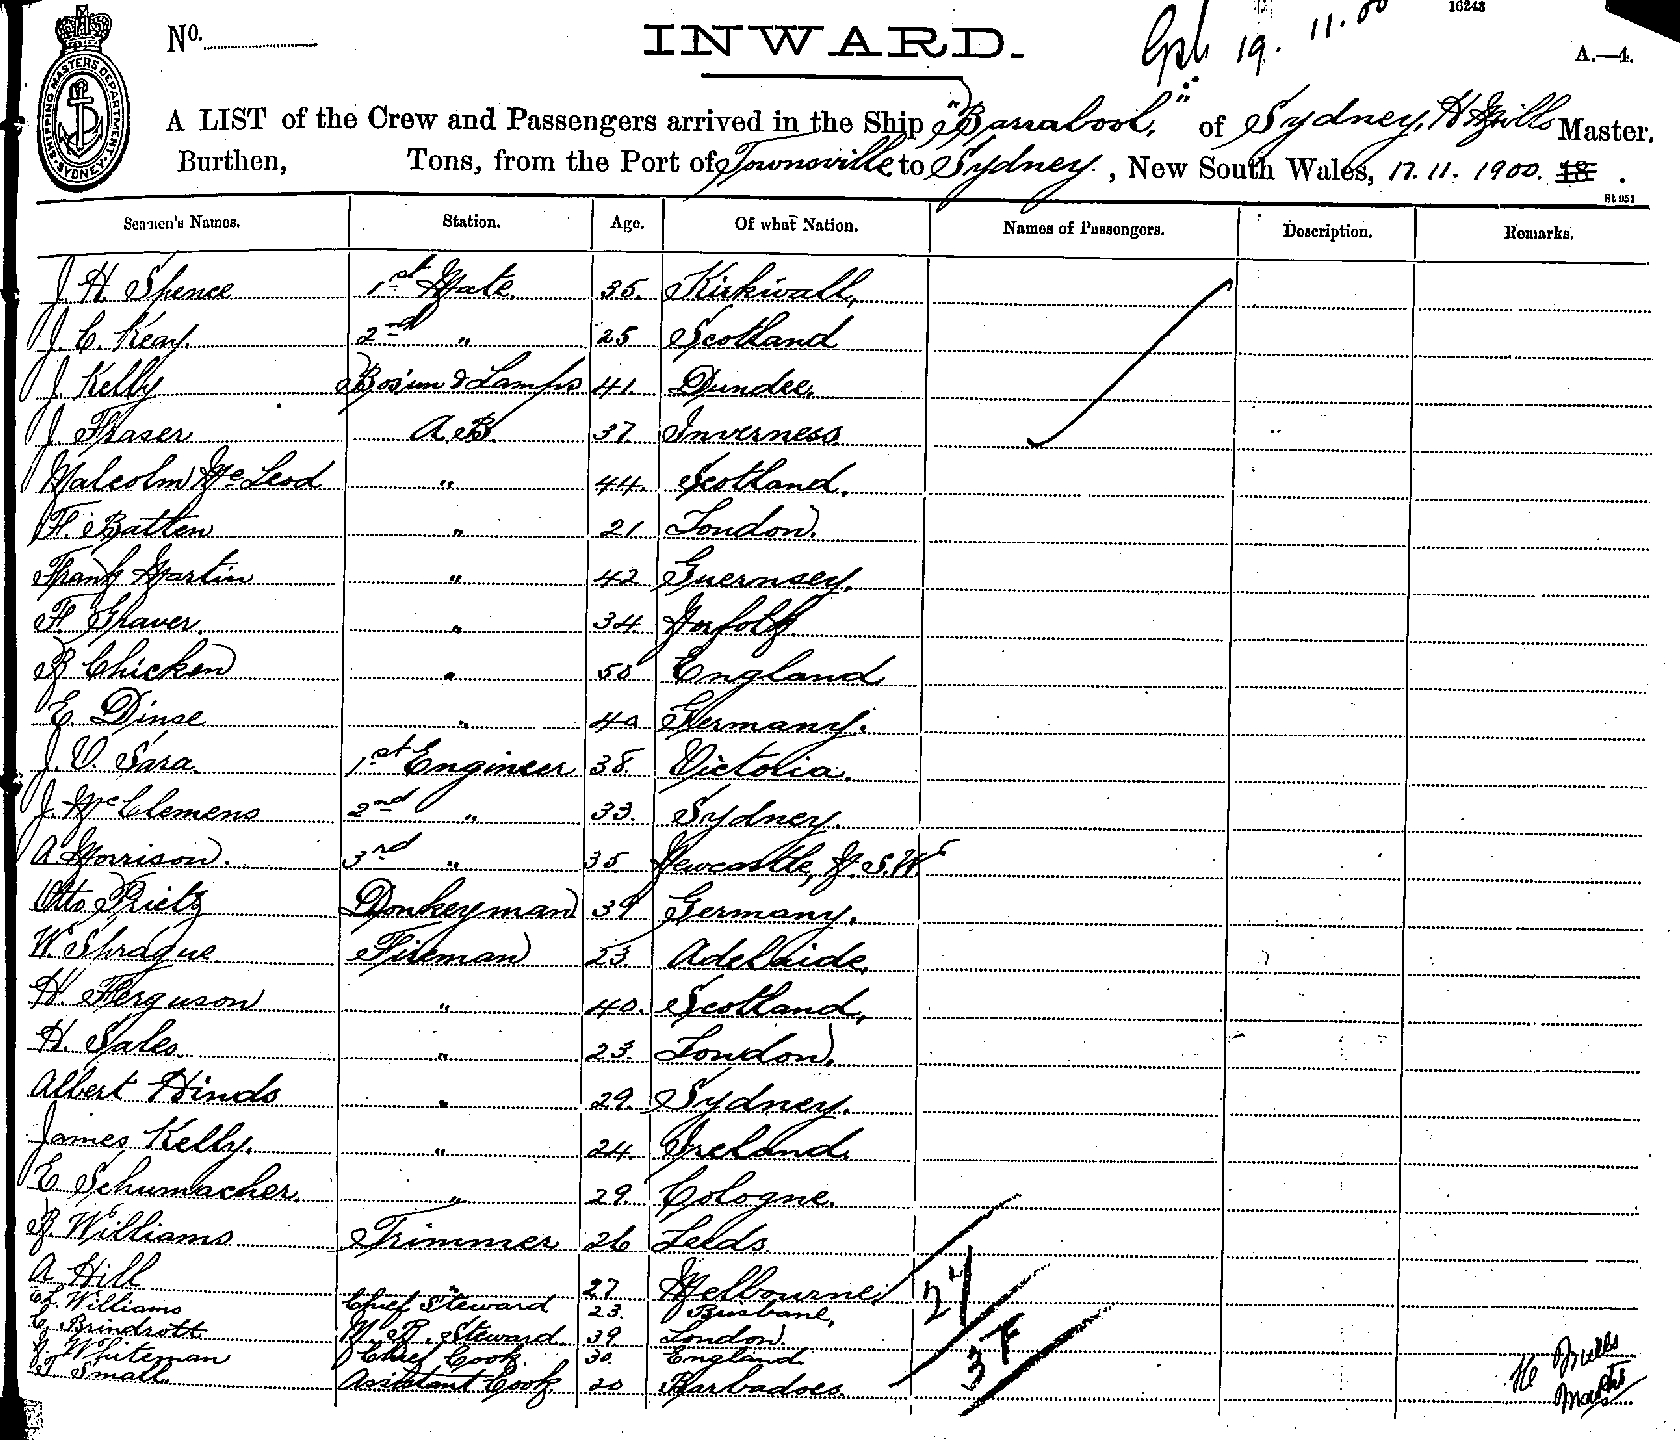 16243
No.
INWARD.
19. 11.00
A.—4.
SHIPPING MASTERS DEPARTMENT SYDNEY
A LIST of the Crew and Passengers arrived in the Ship "Barrabool," of Sydney, H Mills Master.
Burthen, Tons, from the Port of Townsville to Sydney, New South Wales, 17.11.1900. 18 .
Seamen's Names. Station. Age. Of what Nation. Names of Passengers. Description. Remarks.
J. H. Spence 1st Mate. 35. Kirkwall,
J. C. Keay. 2nd " 25 Scotland
J. Kelly Bosun & Lamps 41. Dundee.
J. Fraser A.B. 37 Inverness
Malcolm McLeod " 44. Scotland.
H. Batten " 21 London.
Frank Martin " 42 Guernsey.
H. Graver. " 34 Norfolk
R Chicken " 50 England
E. Dinse " 40 Germany.
J. V. Sara. 1st Engineer 38. Victoria.
J. McClemens 2nd " 33. Sydney.
A Morrison. 3rd " 35 Newcastle, N.S.W
Otto Rietz Donkeyman 39 Germany.
W. Sprague Fireman 23 Adelaide.
H Ferguson " 40. Scotland,
H. Sales " 23. London.
Albert Hinds " 29. Sydney.
James Kelly. " 24. Ireland.
E Schumacher. " 29. Cologne.
R. Williams Trimmer 26 Leeds
A Hill " 27 Melbourne
Williams Chief Steward 23. Brisbane,
C. Brindrott M. R. Steward 39 London.
Whiteman Chief Cook. 30. England
Small Assistant Cook 20 Barbadoes
H Mills
Master